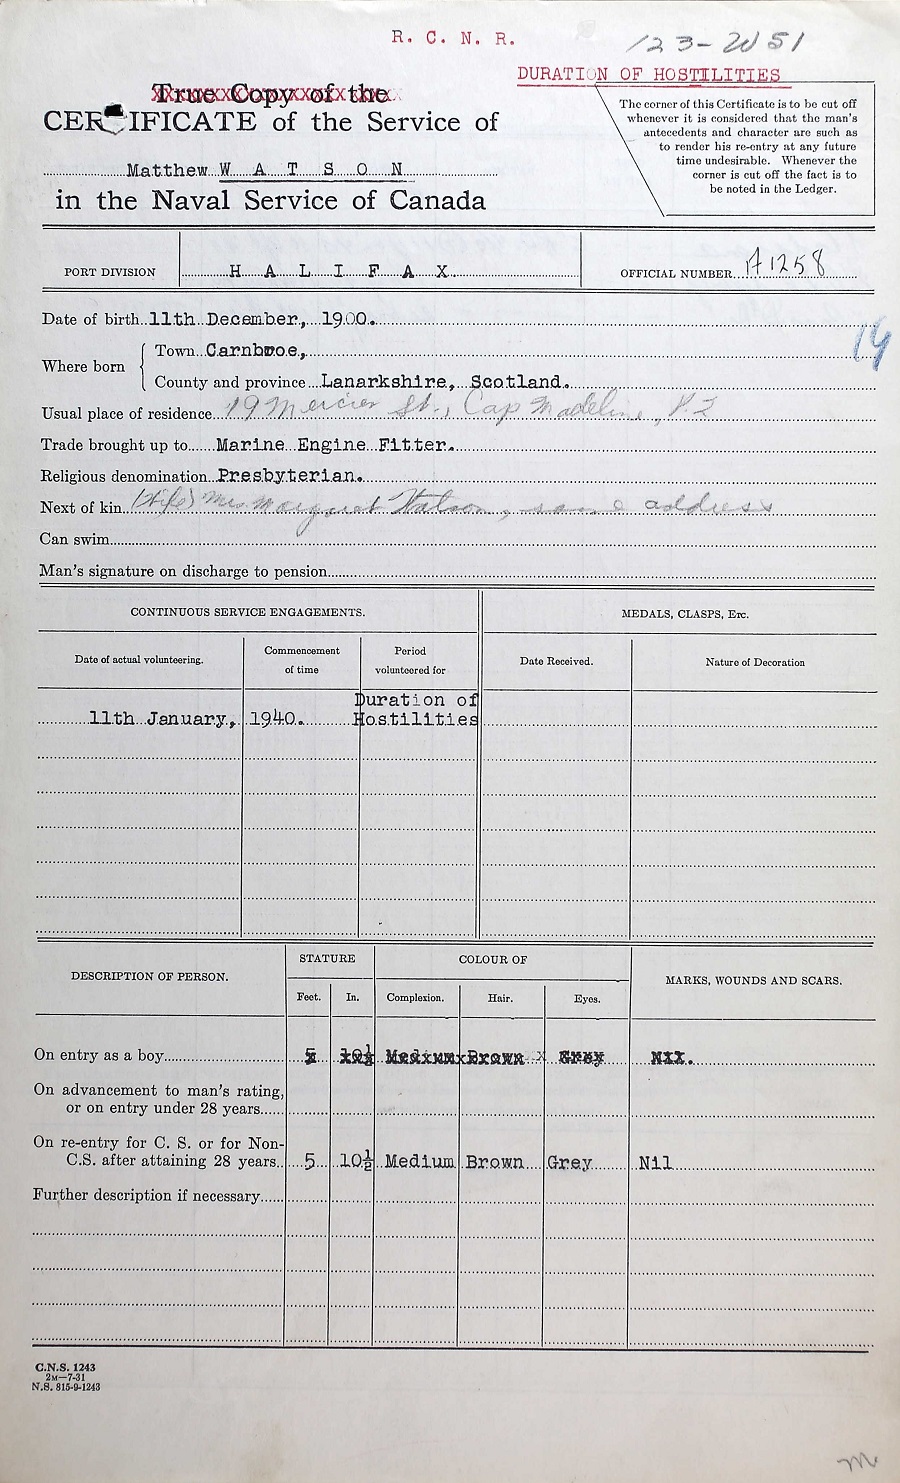 R. C. N. R.
123-W51
DURATION OF HOSTILITIES
True Copy of the
CERTIFICATE of the Service of
Matthew W A T S O N
in the Naval Service of Canada
The corner of this Certificate is to be cut off
whenever it is considered that the man's
antecedents and character are such as
to render his re-entry at any future
time undesirable. Whenever the
corner is cut off the fact is to
be noted in the Ledger.
PORT DIVISION H A L I F A X. OFFICIAL NUMBER A1258
Date of birth 11th December, 1900.
14
Where born
Town Carnbroe,
County and province Lanarkshire, Scotland.
Usual place of residence 19 Mercier St., Cap Madeline, P.Q
Trade brought up to Marine Engine Fitter.
Religious denomination Presbyterian.
Next of kin (Wife) Mrs Margaret Watson, same address
Can swim
Man's signature on discharge to pension
CONTINUOUS SERVICE ENGAGEMENTS. MEDALS, CLASPS, Etc.
Date of actual volunteering. Commencement of time Period volunteered for Date Received. Nature of Decoration
11th January, 1940. Duration of Hostilities
DESCRIPTION OF PERSON. STATURE COLOUR OF MARKS, WOUNDS AND SCARS.
Feet. In. Complexion. Hair. Eyes.
On entry as a boy 5 10½ Medium Brown Grey Nil.
On advancement to man's rating,
or on entry under 28 years
On re-entry for C. S. or for Non-
C.S. after attaining 28 years 5 10½ Medium Brown Grey Nil
Further description if necessary
C.N.S. 1243
2M—7-31
N.S. 815-9-1243
m